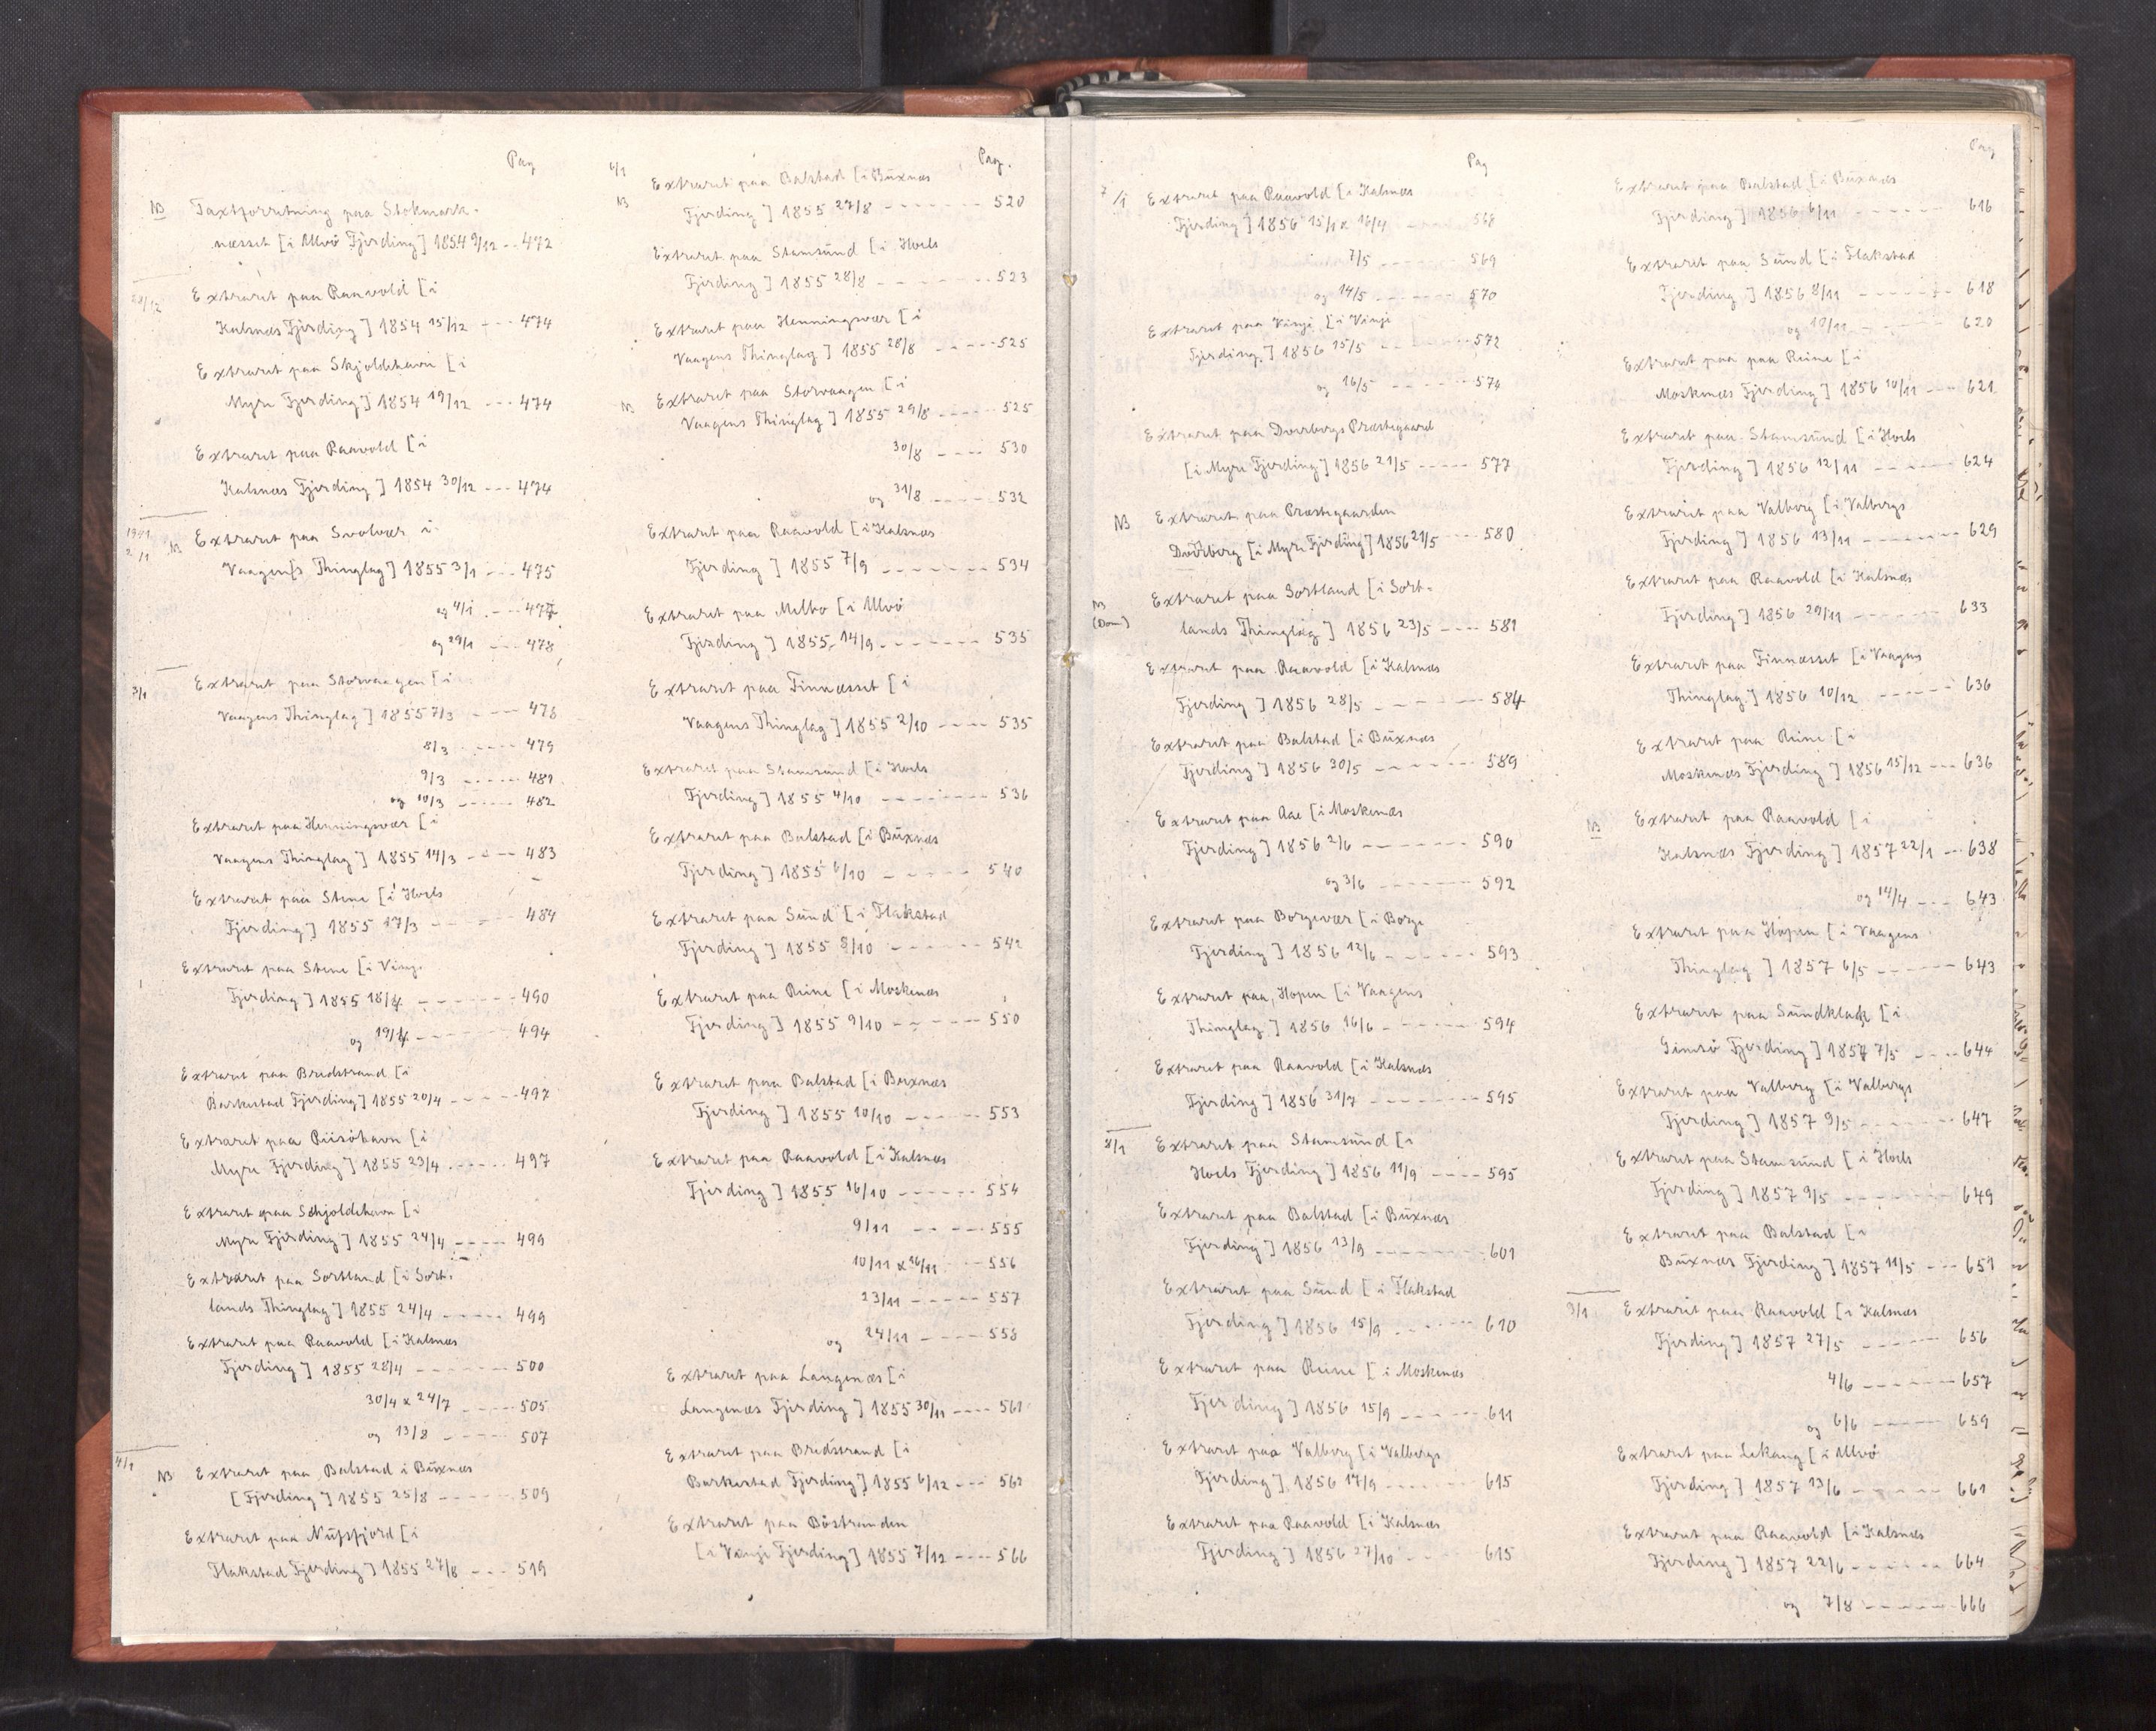 Pag
NB Taxtforretning paa Stokmark-
næsset [i Ulvö Fjerding] 1854 9/12 -- 472
28/12
Extraret paa Raavold [i
Kalsnæs Fjerding] 1854 15/12 --- 474
Extraret paa Skjoldehavn [i
Myre Fjerding] 1854 19/12 --- 474
Extraret paa Raavold [i
Kalsnæs Fjerding] 1854 30/12 --- 474
1941
2/1 NB Extraret paa Svolvær i
Vaagen[s Thinglag] 1855 3/1 --- 475
og 4/1 --- 477
og 29/1 --- 478
3/1
Extraret paa Storvaagen [i
Vaagens Thinglag] 1855 7/3 ---- 478
8/3 ----- 479
9/3 ----- 481
og 10/3 ----- 482
Extraret paa Henningsvær [i
Vaagens Thinglag] 1855 14/3 ---- 483
Extraret paa Stene [i Hoels
Fjerding] 1855 17/3 ---- 484
Extraret paa Stene [i Vinje
Fjerding] 1855 18/4 ------- 490
og 19/4 ------- 494
Extraret paa Bredstrand [i
Barkestad Fjerding] 1855 20/4 ----- 497
Extraret paa Riisöhavn [i
Myre Fjerding] 1855 23/4 ------ 497
Extraret paa Schjoldehavn [i
Myre Fjerding] 1855 24/4 ----- 499
Extraret paa Sortland [i Sort-
lands Thinglag] 1855 24/4 ----- 499
Extraret paa Raavold [i Kalsnæs
Fjerding] 1855 28/4 ------- 500
30/4 & 24/7 ----- 505
og 13/8 ----- 507
4/1
NB Extraret paa Balstad i Büxnæs
[Fjerding] 1855 25/8 ------ 509
Extraret paa Nüfsfjord [i
Flakstad Fjerding] 1855 27/8 --- 519
6/1 Pag.
Extraret paa Balstad [i Büxnæs
NB Fjerding] 1855 27/8 ------- 520
Extraret paa Stamsünd [i Hoels
Fjerding] 1855 28/8 -------- 523
Extraret paa Henningsvær [i
Vaagens Thinglag] 1855 28/8 ----- 525
NB Extraret paa Storvaagen [i
Vaagens Thinglag] 1855 29/8 ----- 525
30/8 ---- 530
og 31/8 ----- 532
Extraret paa Raavold [i Kalsnæs
Fjerding] 1855 7/9 ------- 534
Extraret paa Melbo [i Ulvö
Fjerding] 1855 14/9 ------- 535
Extraret paa Finnæsset [i
Vaagens Thinglag] 1855 2/10 ----- 535
Extraret paa Stamsund [i Hoels
Fjerding] 1855 4/10 -------- 536
Extraret paa Balstad [i Büxnæs
Fjerding] 1855 6/10 ------ 540
Extraret paa Sünd [i Flakstad
Fjerding] 1855 8/10 ------ 542
Extraret paa Reine [i Moskenæs
Fjerding] 1855 9/10 ------ 550
Extraret paa Balstad [i Buxnæs
Fjerding] 1855 10/10 ------ 553
Extraret paa Raavold [i Kalsnæs
Fjerding] 1855 16/10 ------ 554
9/11 ----- 555
10/11 & 16/11 -- 556
23/11 ----- 557
og 24/11 ---- 558
Extraret paa Langenæs [i
Langenæs Fjerding] 1855 30/11 ---- 561
Extraret paa Bredstrand [i
Barkestad Fjerding] 1855 6/12 --- 562
Extraret paa Böstranden
[i Vinje Fjerding] 1855 7/12 ---- 566
Pag
7/1 Extraret paa Raavold [i Kalsnæs
Fjerding] 1856 15/1 & 16/4 --- 568
7/5 ------ 569
og 14/5 ------ 570
Extraret paa Vinje [i Vinje
Fjerding] 1856 15/5 ------- 572
og 16/5 ------ 574
Extraret paa Dverbergs Præstegaard
[i Myre Fjerding] 1856 21/5 ----- 577
NB Extraret paa Præstegaarden
Dverberg [i Myre Fjerding] 1856 21/5 ---- 580
NB
(Dom) Extraret paa Sortland [i Sort-
lands Thinglag] 1856 23/5 ---- 581
Extraret paa Raavold [i Kalsnæs
Fjerding] 1856 28/5 ------- 584
Extraret paa Balstad [i Büxnæs
Fjerding] 1856 30/5 ------- 589
Extraret paa Aae [i Moskenæs
Fjerding] 1856 2/6 -------- 590
og 3/6 ------- 592
Extraret paa Borgevær [i Borge
Fjerding] 1856 12/6 ------- 593
Extraret paa Hopen [i Vaagens
Thinglag] 1856 16/6 ------- 594
Extraret paa Raavold [i Kalsnæs
Fjerding] 1856 31/7 -------- 595
8/1 Extraret paa Stamsünd [i
Hoels Fjerding] 1856 11/9 ---- 595
Extraret paa Balstad [i Büxnæs
Fjerding] 1856 13/9 -------- 601
Extraret paa Sünd [i Flakstad
Fjerding] 1856 15/9 ------ 610
Extraret paa Reine [i Moskenæs
Fjerding] 1856 15/9 ------ 611
Extraret paa Valberg [i Valbergs
Fjerding] 1856 17/9 ------- 615
Extraret paa Raavold [i Kalsnæs
Fjerding] 1856 27/10 ---- 615
Pag
Extraret paa Balstad [i Büxnæs
Fjerding] 1856 6/11 ------ 616
Extraret paa Sünd [i Flakstad
Fjerding] 1856 8/11 ------- 618
og 10/11 ------ 620
Extraret paa paa Reine [i
Moskenæs Fjerding] 1856 10/11 --- 621
Extraret paa Stamsünd [i Hoels
Fjerding] 1856 12/11 ------ 624
Extraret paa Valberg [i Valbergs
Fjerding] 1856 13/11 -------- 629
Extraret paa Raavold [i Kalsnæs
Fjerding] 1856 29/11 ------- 633
Extraret paa Finnæsset [i Vaagens
Thinglag] 1856 10/12 ------ 636
Extraret paa Reine [i
Moskenæs Fjerding] 1856 15/12 --- 636
NB Extraret paa Raavold [i
Kalsnæs Fjerding] 1857 22/1 --- 638
og 14/4 --- 643
Extraret paa Hopen [i Vaagens
Thinglag] 1857 6/5 ------ 643
Extraret paa Sündklack [i
Gimsö Fjerding] 1857 7/5 ---- 644
Extraret paa Valberg [i Valbergs
Fjerding] 1857 9/5 ------- 647
Extraret paa Stamsünd [i Hoels
Fjerding] 1857 9/5 ------- 649
Extraret paa Balstad [i
Büxnæs Fjerding] 1857 11/5 --- 651
3/1 Extraret paa Raavold [i Kalsnæs
Fjerding] 1857 27/5 ------ 656
4/6 ------- 657
og 6/6 ------ 659
Extraret paa Lekang [i Ulvö
Fjerding] 1857 13/6 ------- 661
Extraret paa Raavold [i Kalsnæs
Fjerding] 1857 22/6 ------- 664
og 7/8 ------- 666